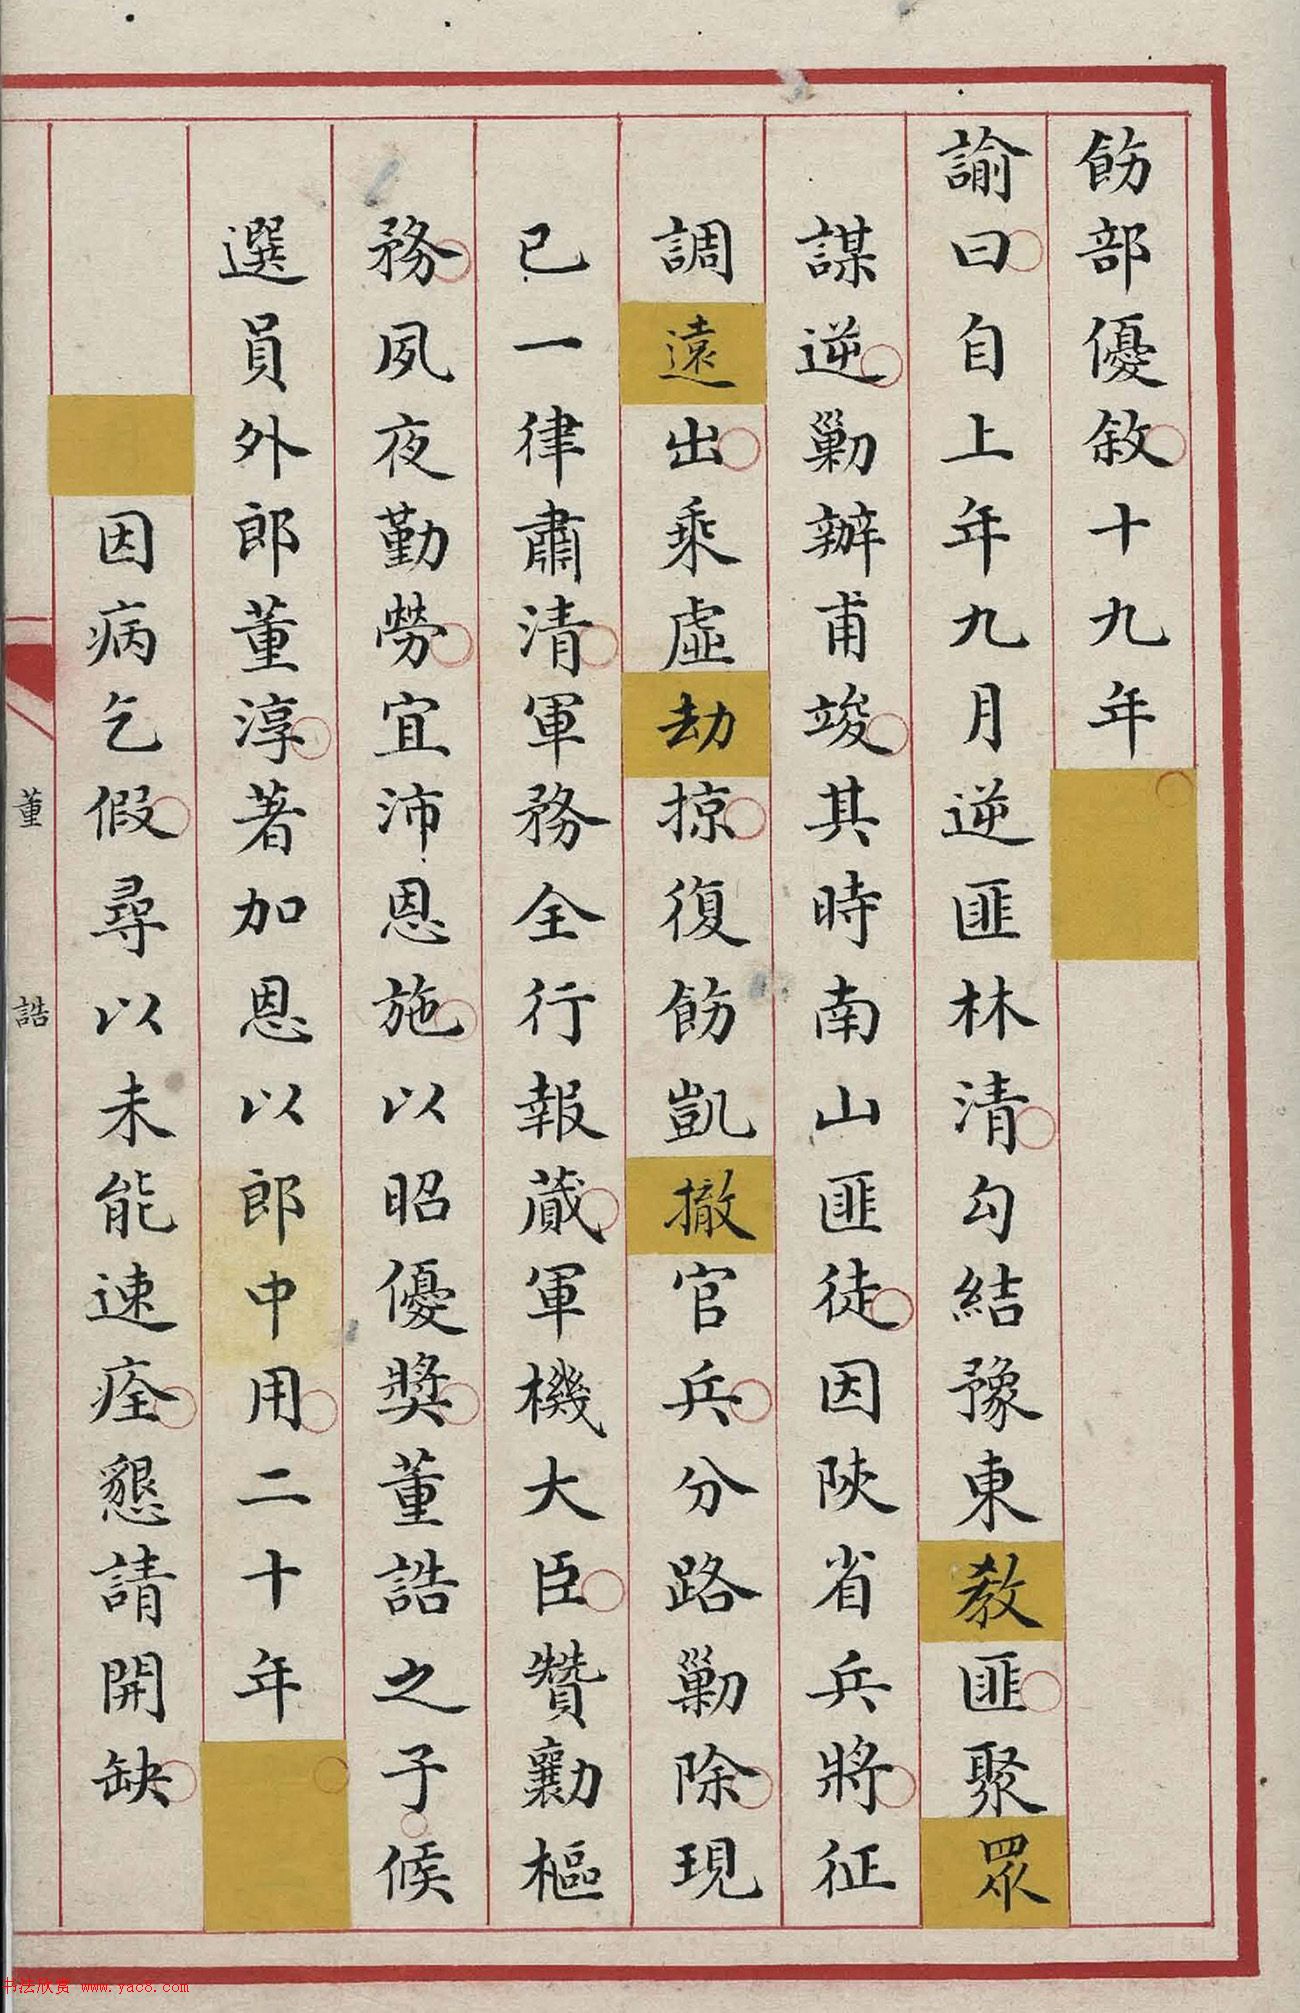 飭部優敘十九年
諭曰自上年九月逆匪林清勾結豫東教匪聚眾
謀逆剿辦甫竣其時南山匪徒因陝省兵將征
調遠出乘虛劫掠復飭凱撤官兵分路剿除現
已一律肅清軍務全行報蕆軍機大臣贊勷樞
務夙夜勤勞宜沛恩施以昭優獎董誥之子候
選員外郎董淳著加恩以郎中用二十年
因病乞假尋以未能速痊懇請開缺
董誥
书法欣赏 www.yac8.com